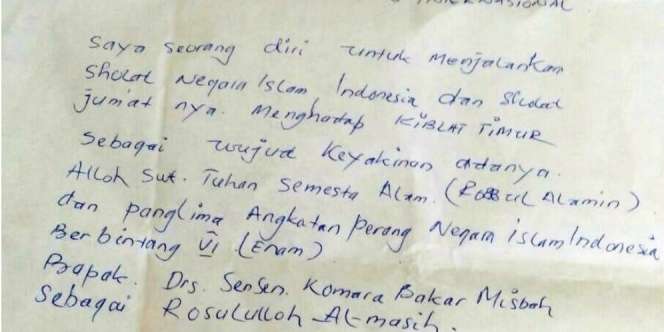 Saya seorang diri untuk menjalankan
Sholat Negara Islam Indonesia dan Sholat
jum'at nya. menghadap KIBLAT TIMUR
sebagai wujud keyakinan adanya.
Alloh Swt. Tuhan Semesta Alam. (Robbul Alamin)
dan panglima Angkatan Perang Negara islam Indonesia
Berbintang VI (Enam)
Bapak. Drs. Sensen. Komara Bakar Misbah
Sebagai Rosululloh Al-masih.